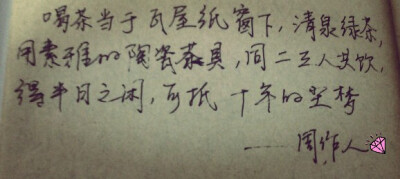 喝茶当于瓦屋纸窗下，清泉绿茶，
用素雅的陶瓷茶具，同二三人共饮，
得半日之闲，可抵十年的尘梦
——周作人